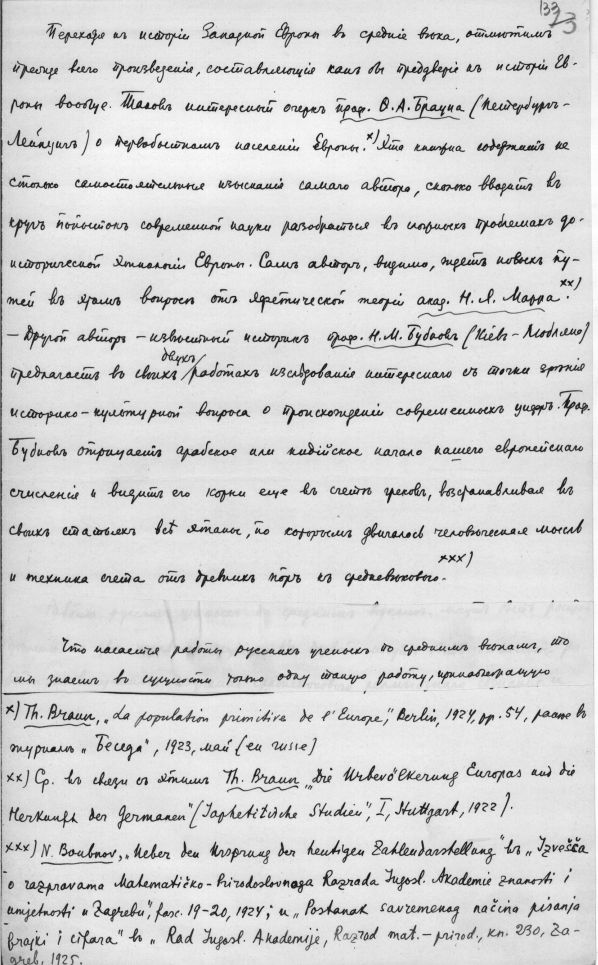 133
23
Переходя къ исторіи Западной Европы въ средніе вѣка, отмѣтимъ
прежде всего произведенія, составляющія какъ бы преддверіе къ исторіи Ев-
ропы вообще. Таковъ интересный очеркъ проф. Ѳ. А. Брауна (Петербургъ-
Лейпцигъ) о первобытномъ населеніи Европы.x) Эта книжка содержитъ не
столько самостоятельныя изысканія самаго автора, сколько вводитъ въ
кругъ попытокъ современной науки разобраться въ сложныхъ проблемахъ до-
исторической этнологіи Европы. Самъ авторъ, видимо, ждетъ новыхъ пу-
тей въ этомъ вопросѣ отъ яфетической теоріи акад. Н. Я. Марра.xx)
— Другой авторъ — извѣстный историкъ проф. Н. М. Бубновъ (Кіевъ - Любляно)
предлагаетъ въ своихъ двухъ работахъ изслѣдованіе интереснаго съ точки зрѣнія
историко-культурной вопроса о происхожденіи современныхъ цифръ. Проф.
Бубновъ отрицаетъ арабское или индійское начало нашего европейскаго
счисленія и видитъ его корни еще въ счетѣ грековъ, возстанавливая въ
своихъ статьяхъ всѣ этапы, по которымъ двигалось человѣческая мысль
и техника счета отъ древнихъ поръ къ средневѣковому.xxx)
Что касается работы русскихъ ученыхъ по среднимъ вѣкамъ, то
мы знаемъ въ сущности только одну такую работу, принадлежащую
x) Th. Braun, „La population primitive de l'Europe", Berlin, 1924, pp. 54, ранѣе въ
журналѣ „Беседа", 1923, май (en russe)
xx) Ср. въ связи съ этимъ Th. Braun „Die Urbevölkerung Europas und die
Herkunft der Germanen" (Japhetitische Studien", I, Stuttgart, 1922).
xxx) N. Boubnov, „Ueber den Ursprung der heutigen Zahlendarstellung" въ „Izvešća
o razpravama Matematičko-Prirodoslovnoga Razreda Jugosl. Akademie znanosti i
umjetnosti u Zagrebu", fasc. 19-20, 1924; и „Postanak savremenog načina pisanja
brojki i cifara" въ „Rad Jugosl. Akademije, Razred mat.-prirod., кн. 230, Za-
greb, 1925.